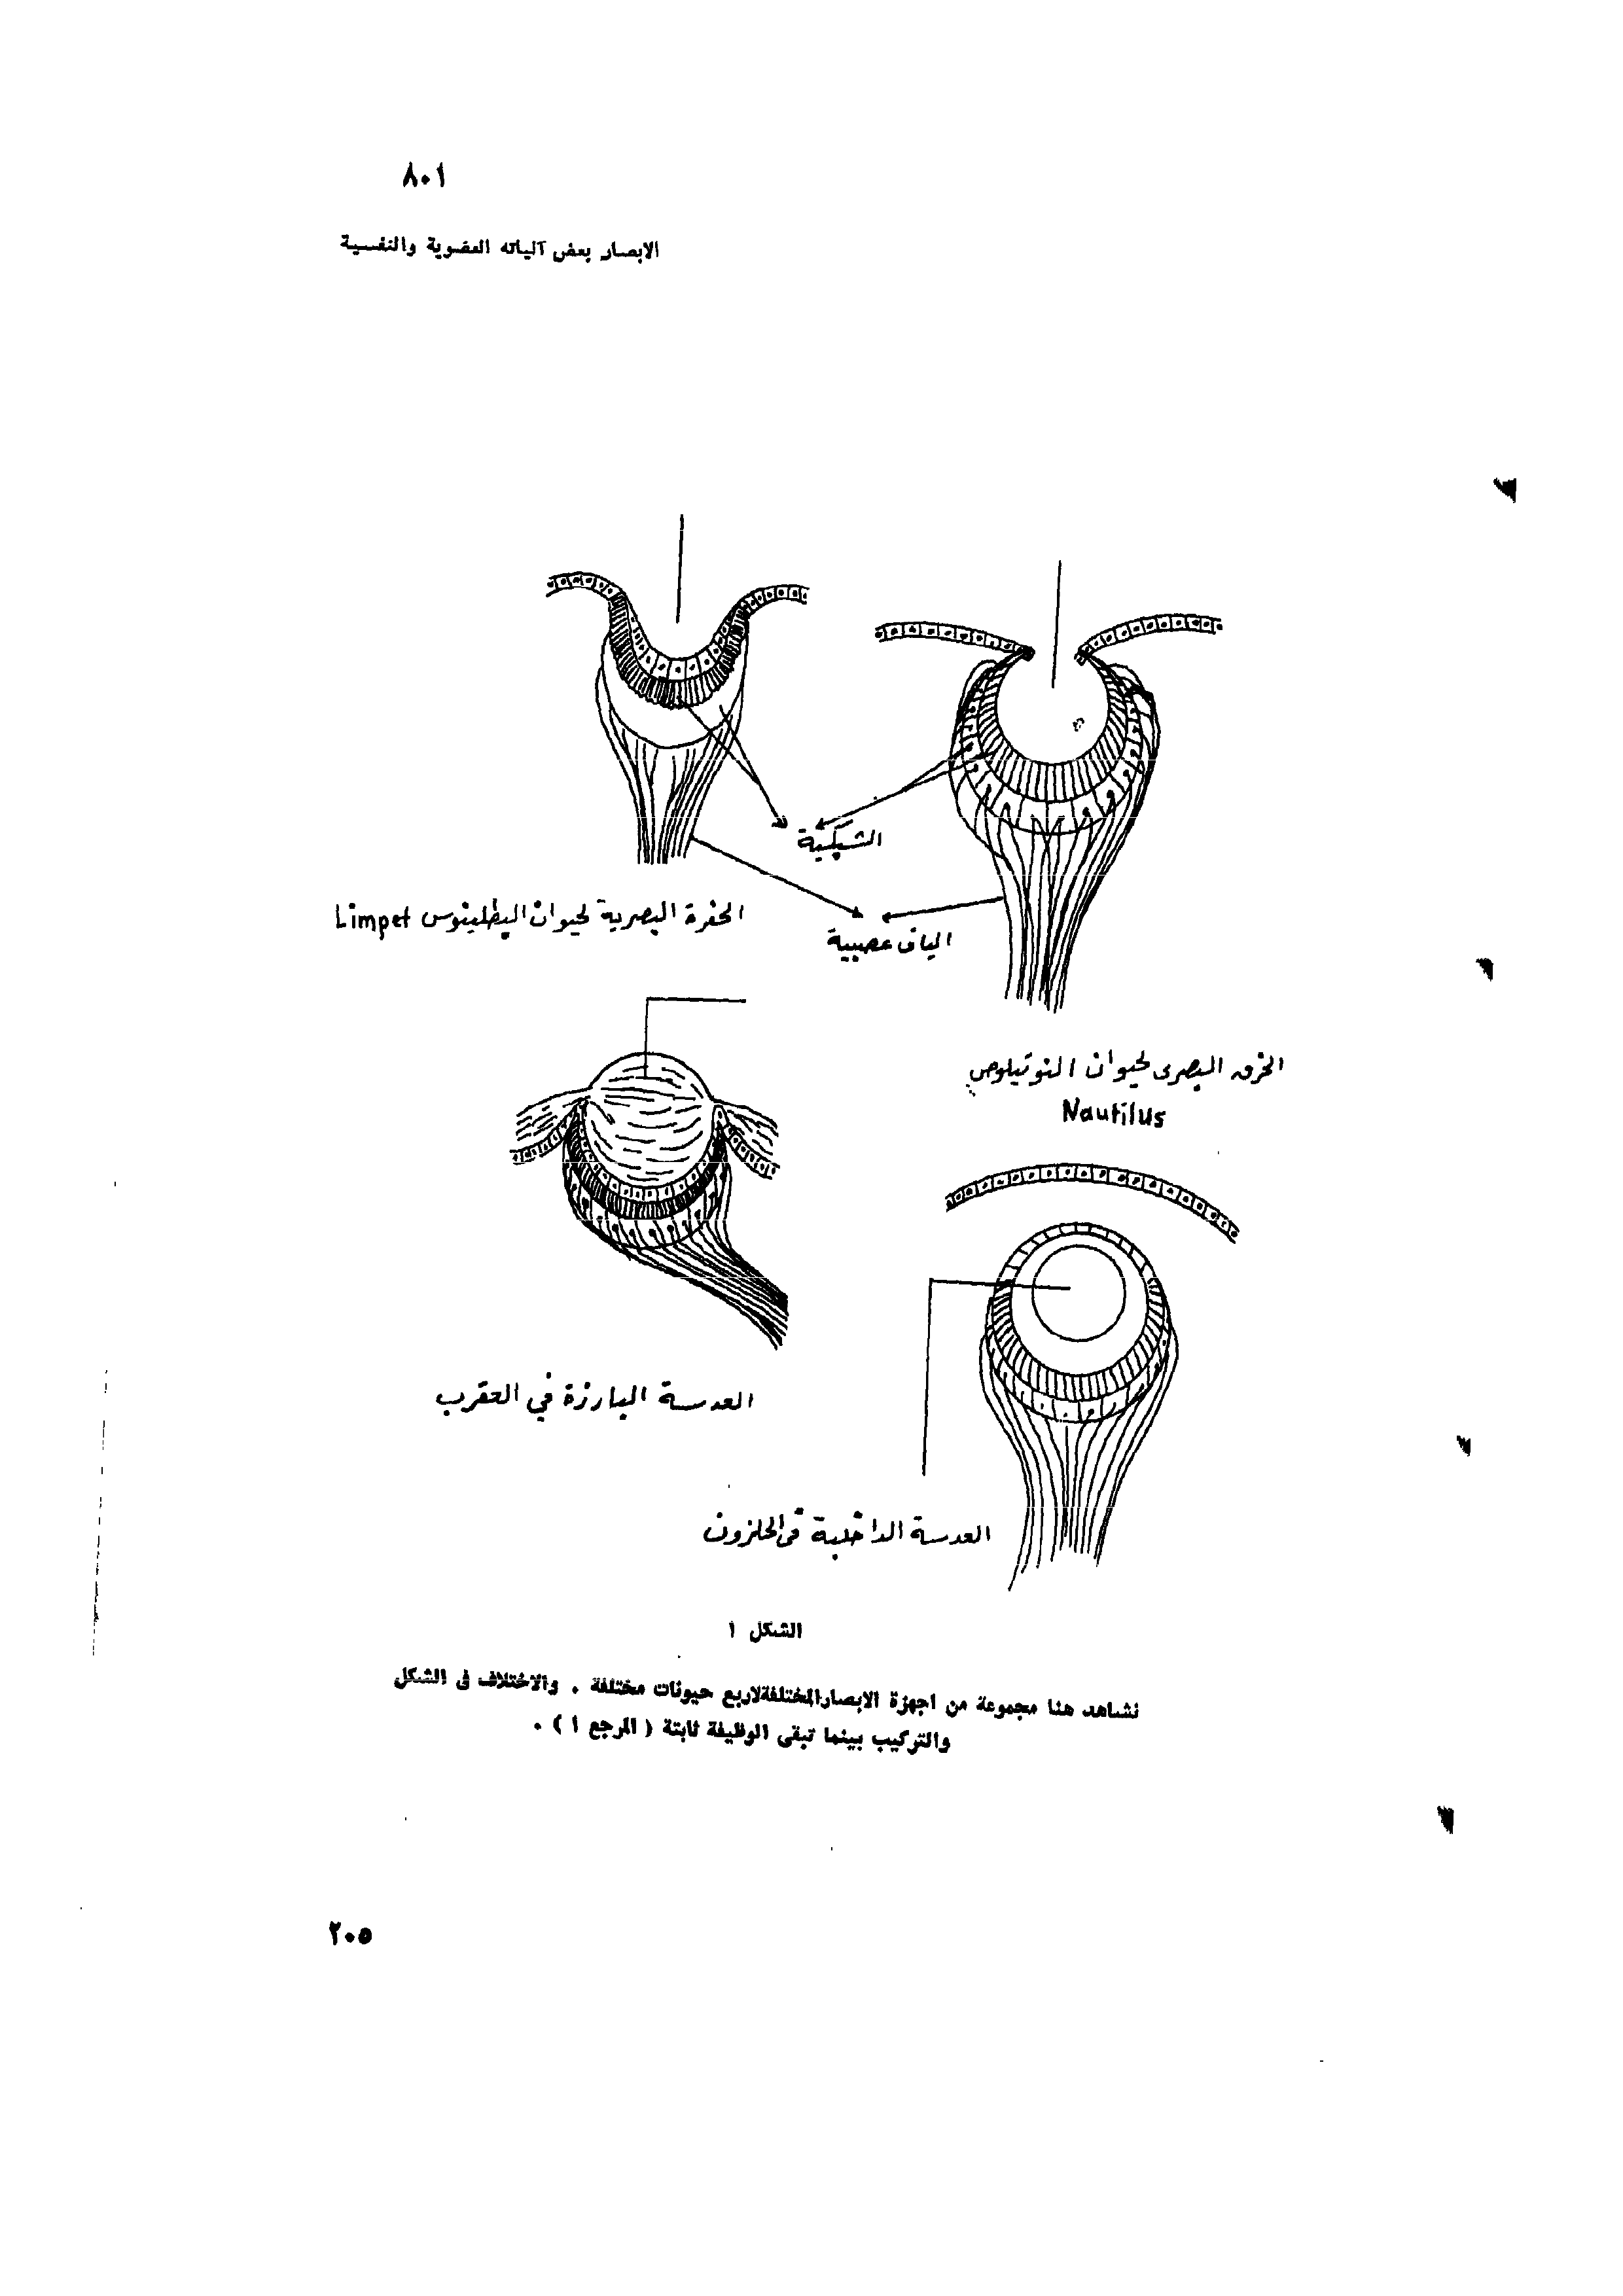 ٨٠١
الابصار بعض آلياته العضوية والنفسية
الشبكية
الحفرة البصرية لحيوان البطلينوس Limpet
الياف عصبية
الخرق البصرى لحيوان النوتيلوس
Nautilus
العدسة البارزة في العقرب
العدسة الداخلية فى الحلزون
الشكل ١
نشاهد هنا مجموعة من اجهزة الابصار المختلفة لاربع حيونات مختلفة . والاختلاف فى الشكل
والتركيب بينما تبقى الوظيفة ثابتة ( المرجع ١ ) .
٢٠٥